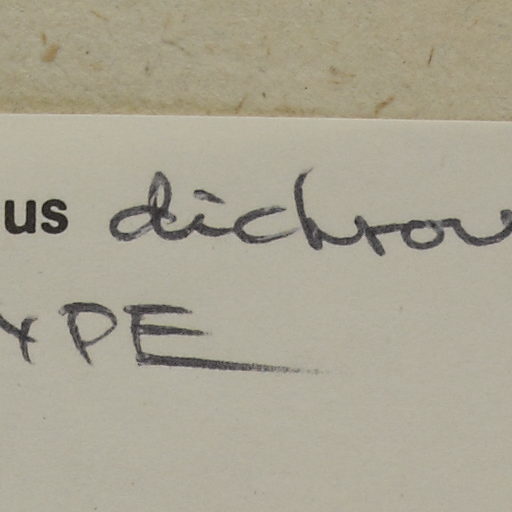 us dichrou
YPE